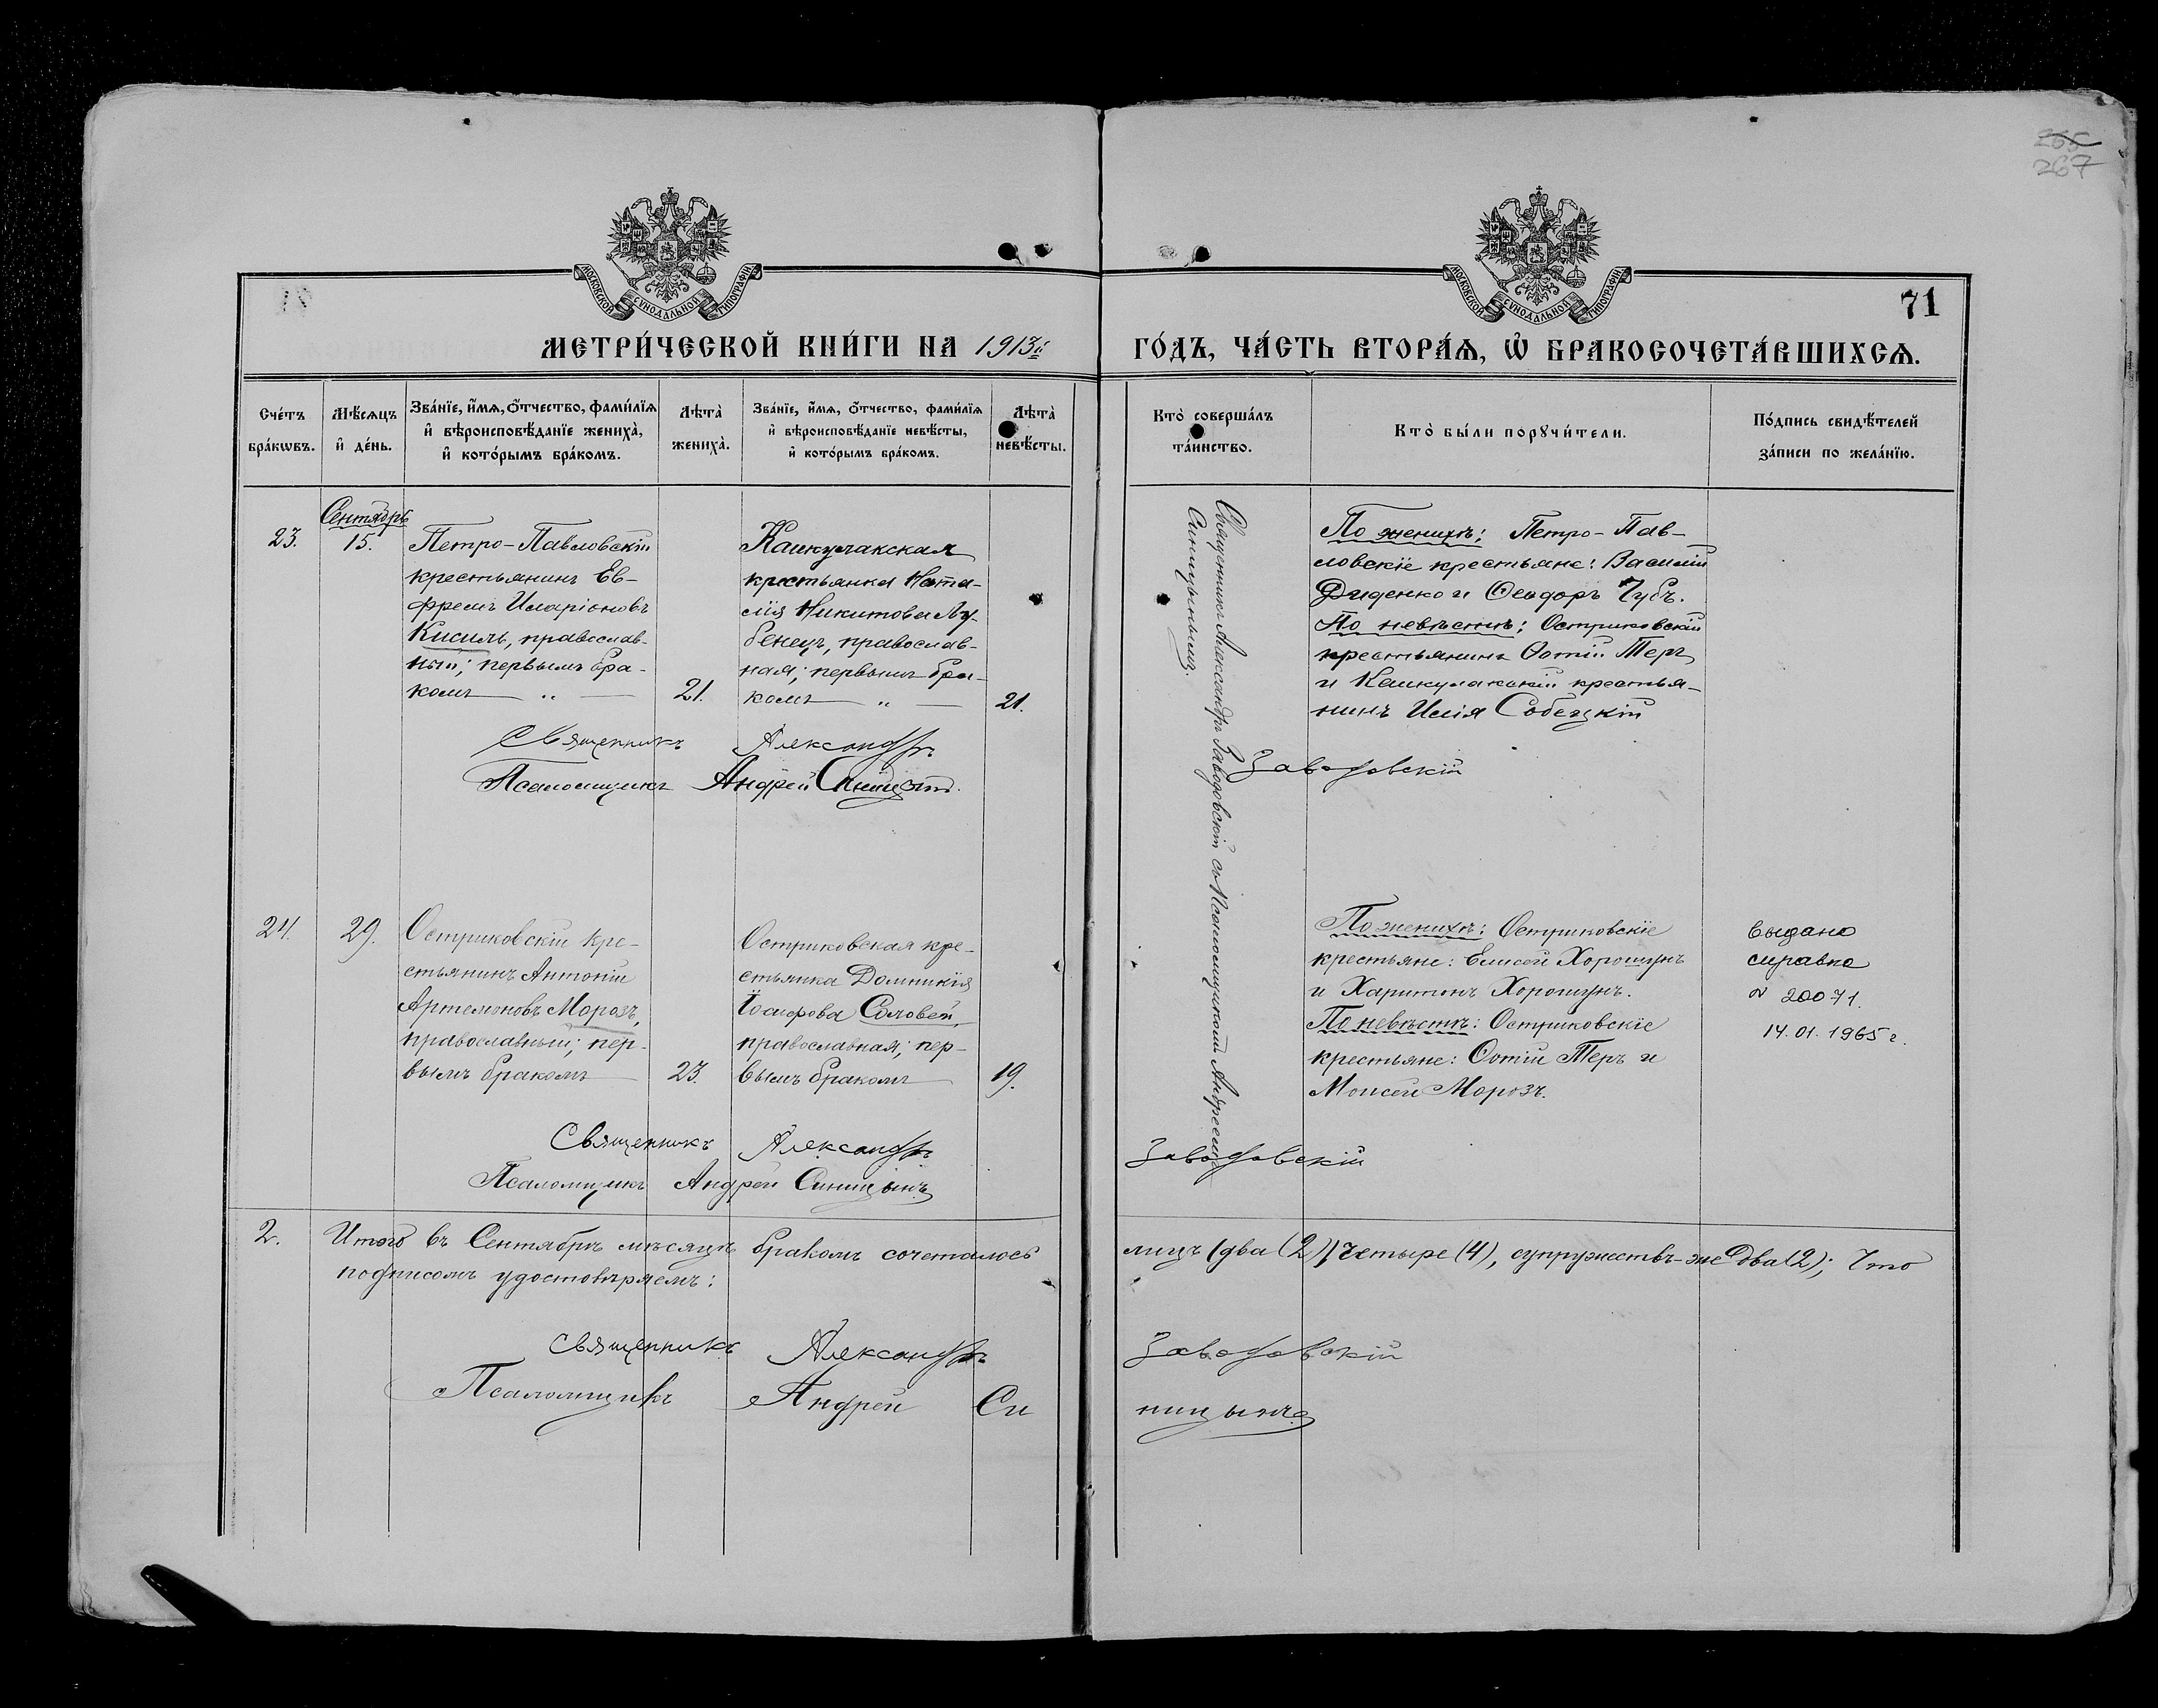 265
267
МОСКОВСКОЙ СѴНОДАЛЬНОЙ ТИПОГРАФІИ
МОСКОВСКОЙ СѴНОДАЛЬНОЙ ТИПОГРАФІИ
71
МЕТРИ́ЧЕСКОЙ КНИ́ГИ НА 1913й
ГО́ДЪ, ЧА́СТЬ ВТОРА́Ѧ, Ѽ БРАКОСОЧЕТА́ВШИХСѦ.
Сче́тъ бра́кѡвъ.
Мѣ́сѧцъ и҆ де́нь.
Зва́нїе, и҆́мѧ, ѻ҆́тчество, фами́лїѧ
и҆ вѣроисповѣ́данїе жениха̀,
и҆ кото́рымъ бра́комъ.
Лѣта̀ жениха̀.
Зва́нїе, и҆́мѧ, ѻ҆́тчество, фами́лїѧ
и҆ вѣроисповѣ́данїе невѣ́сты,
и҆ кото́рымъ бра́комъ.
Лѣта̀ невѣ́сты.
Кто̀ соверша́лъ
та́инство.
Кто̀ бы́ли порꙋчи́тели.
По́дпись свидѣ́телей
за́писи по жела́нїю.
Сентябрь
23.
15.
Петро-Павловскій
крестьянинъ Ев-
фремъ Иларіоновъ
Кисиль, православ-
ный; первымъ бра-
комъ — „ —
21.
Кашкулакская
крестьянка Ната-
лія Никитова Лу-
бенецъ, православ-
ная; первымъ бра-
комъ — „ —
21.
Священникъ Александръ Заводовскій съ Псаломщикомъ Андреемъ
Синицынымъ.
По женихѣ: Петро-Пав-
ловскіе крестьяне: Василій
Диденко и Ѳеодоръ Чубъ.
По невѣстѣ: Остриковскій
крестьянинъ Ѳотій Теръ
и Кашкулакскій крестья-
нинъ Илія Собецкій
Священникъ Александръ Заводовскій
Псаломщикъ Андрей Синицынъ.
24.
29.
Остриковскій кре-
стьянинъ Антоній
Артемоновъ Морозъ,
православный; пер-
вымъ бракомъ —
23.
Остриковская кре-
стьянка Домникія
Іоасафова Соловей,
православная; пер-
вымъ бракомъ —
19.
По женихѣ: Остриковскіе
крестьяне: Елисей Хорошунъ
и Харитонъ Хорошунъ.
По невѣстѣ: Остриковскіе
крестьяне: Ѳотій Теръ и
Моисей Морозъ.
выдана
справка
N 20071.
14.01.1965 г.
Священникъ Александръ Заводовскій
Псаломщикъ Андрей Синицынъ
2.
Итого въ Сентябрѣ мѣсяцѣ бракомъ сочеталось лицъ (два (2)) четыре (4), супружествъ-же два (2); Что
подписомъ удостовѣряемъ:
Священникъ Александръ Заводовскій
Псаломщикъ Андрей Синицынъ